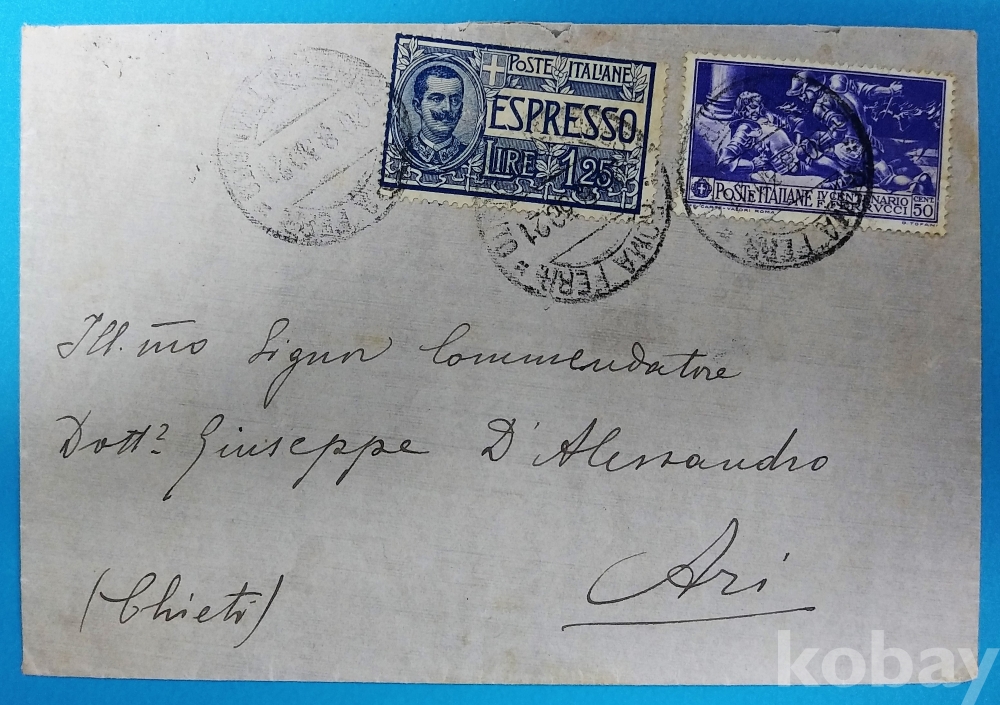 POSTE ITALIANE
ESPRESSO
LIRE 1,25
POSTE ITALIANE IV CENTENARIO CENT.
FERRUCCI 50
ROMA FERR
Ill.mo Signor Commendatore
Dott.r Giuseppe D'Alessandro
Ari
(Chieti)
kobay